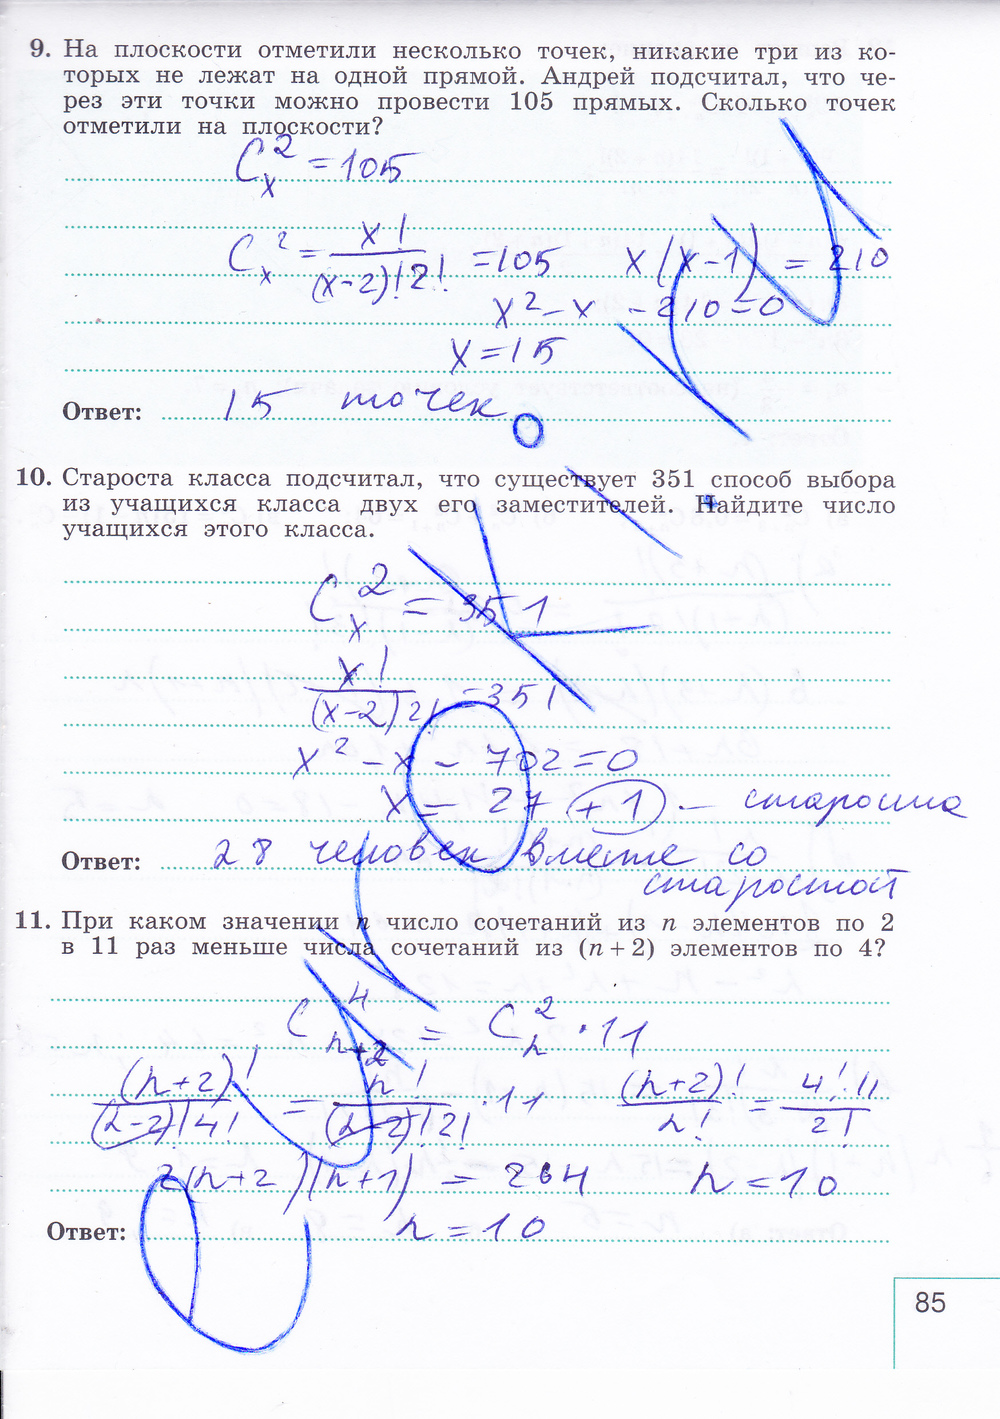 9. На плоскости отметили несколько точек, никакие три из ко-
торых не лежат на одной прямой. Андрей подсчитал, что че-
рез эти точки можно провести 105 прямых. Сколько точек
отметили на плоскости?
C_x^2 = 105
C_x^2 = x!/((x-2)!2!) = 105   x(x-1) = 210
x^2 - x - 210 = 0
x = 15
Ответ: 15 точек
10. Староста класса подсчитал, что существует 351 способ выбора
из учащихся класса двух его заместителей. Найдите число
учащихся этого класса.
C_x^2 = 351
x!/((x-2)!2!) = 351
x^2 - x - 702 = 0
x = 27 + 1 — староста
Ответ: 28 человек вместе со
старостой
11. При каком значении n число сочетаний из n элементов по 2
в 11 раз меньше числа сочетаний из (n + 2) элементов по 4?
C_{n+2}^4 = C_n^2 · 11
(n+2)!/((n-2)!4!) = n!/((n-2)!2!) · 11   (n+2)!/n! = 4!·11/2!
2(n+2)(n+1) = 264   n = 10
Ответ: n = 10
85